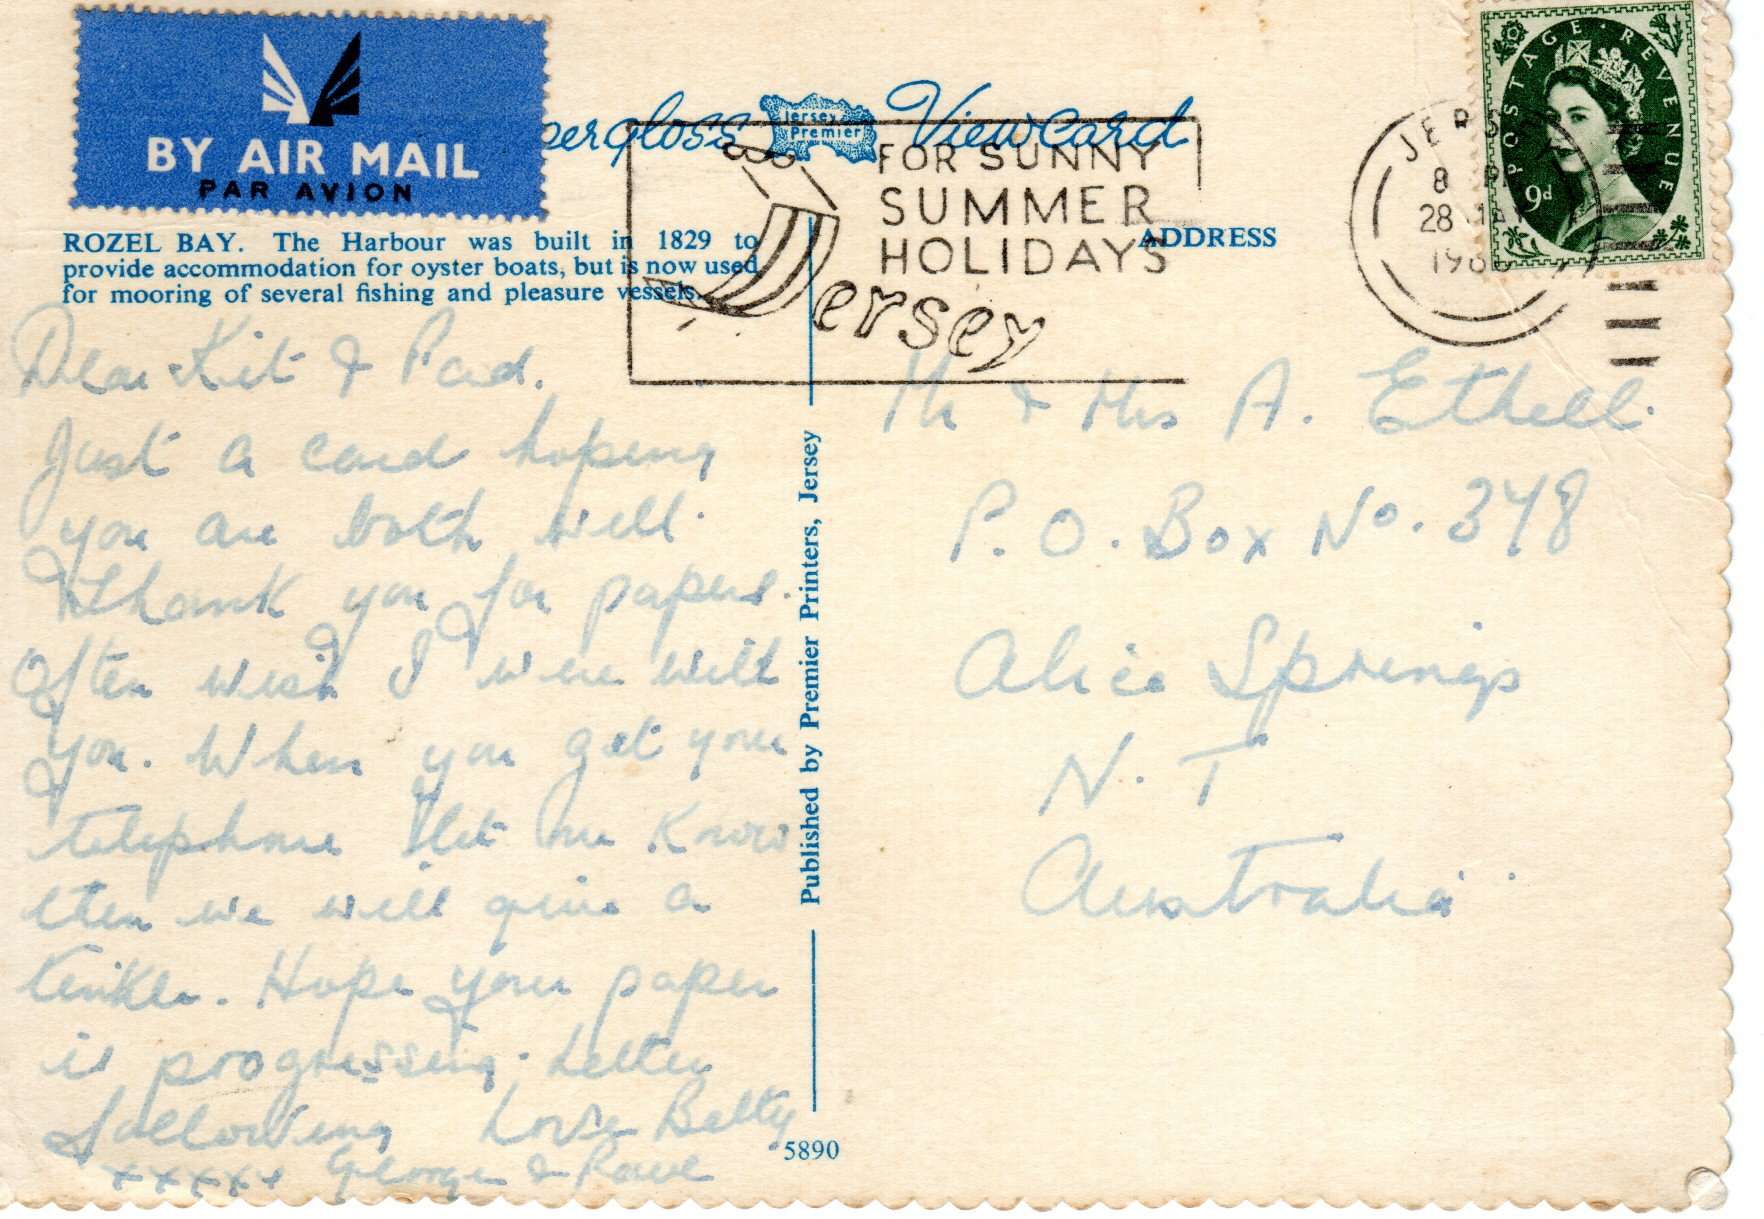 BY AIR MAIL
PAR AVION
pergloss Jersey Premier Viewcard
ROZEL BAY. The Harbour was built in 1829 to
provide accommodation for oyster boats, but is now used
for mooring of several fishing and pleasure vessels.
FOR SUNNY
SUMMER
HOLIDAYS
Jersey
ADDRESS
POSTAGE REVENUE
9d
JERS
8 P
28
Dear Kit &
Just a card hoping
you are both well.
thank you for papers.
Often wish I were with
you. When you get your
telephone let me know
then we will give a
tinkle. Hope your paper
is progressing. Letter
following Love Betty
xxxxx George & Paul
Published by Premier Printers, Jersey
5890
Mr & Mrs A. Ethell.
P.O. Box No. 348
Alice Springs
N.T
Australia.